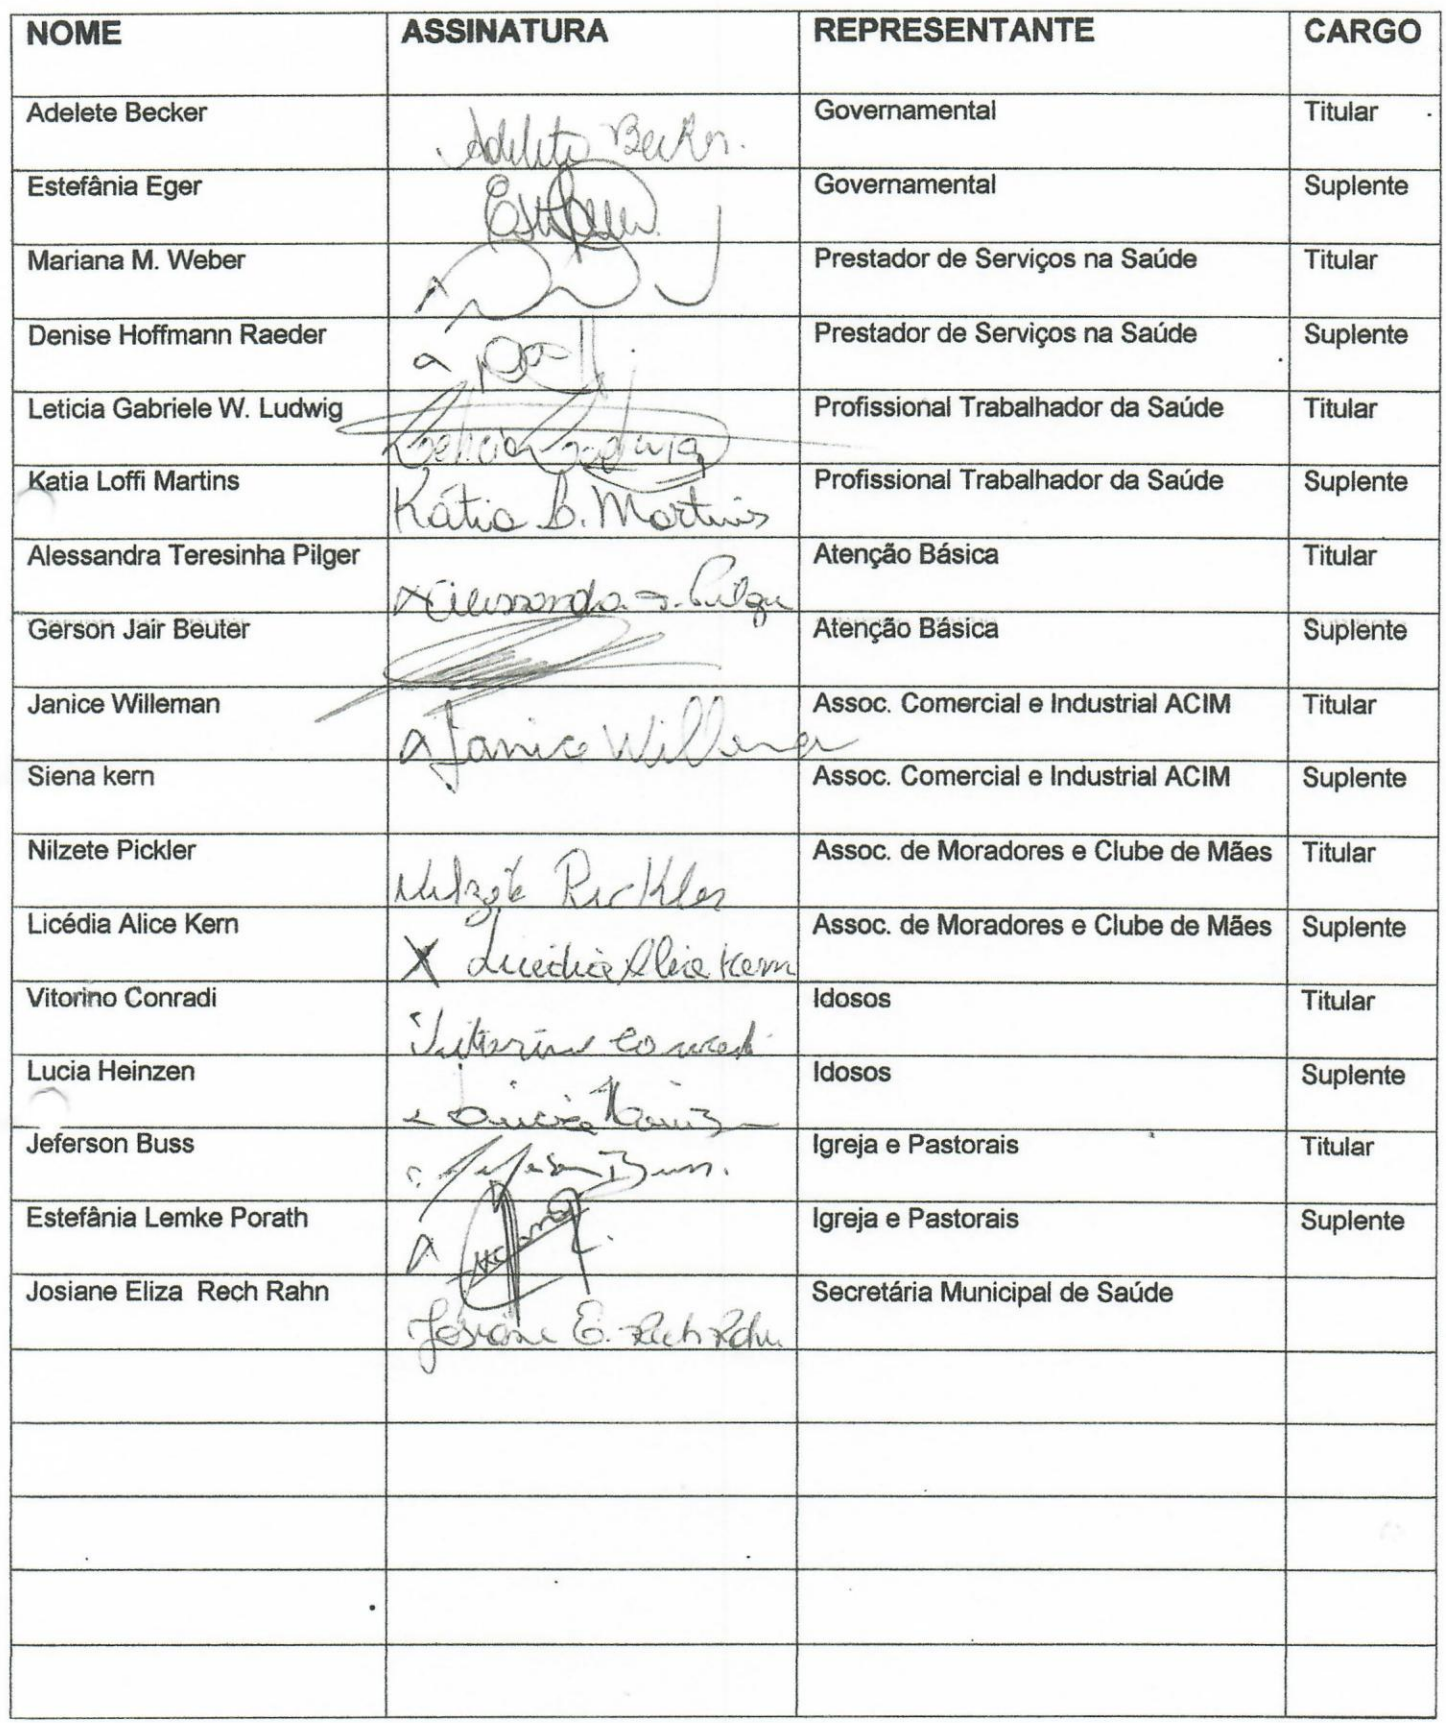 NOME ASSINATURA REPRESENTANTE CARGO
Adelete Becker Adelete Becker. Governamental Titular
Estefânia Eger Governamental Suplente
Mariana M. Weber Prestador de Serviços na Saúde Titular
Denise Hoffmann Raeder Prestador de Serviços na Saúde Suplente
Leticia Gabriele W. Ludwig Leticia Ludwig Profissional Trabalhador da Saúde Titular
Katia Loffi Martins Kátia L. Martins Profissional Trabalhador da Saúde Suplente
Alessandra Teresinha Pilger X Alessandra T. Pilger Atenção Básica Titular
Gerson Jair Beuter Atenção Básica Suplente
Janice Willeman X Janice Willeman Assoc. Comercial e Industrial ACIM Titular
Siena kern Assoc. Comercial e Industrial ACIM Suplente
Nilzete Pickler Nilzete Pickler Assoc. de Moradores e Clube de Mães Titular
Licédia Alice Kern X Licédia Alice Kern Assoc. de Moradores e Clube de Mães Suplente
Vitorino Conradi Vitorino Conradi Idosos Titular
Lucia Heinzen Lucia Heinzen Idosos Suplente
Jeferson Buss Jeferson Buss. Igreja e Pastorais Titular
Estefânia Lemke Porath X Igreja e Pastorais Suplente
Josiane Eliza Rech Rahn Josiane E. Rech Rahn Secretária Municipal de Saúde